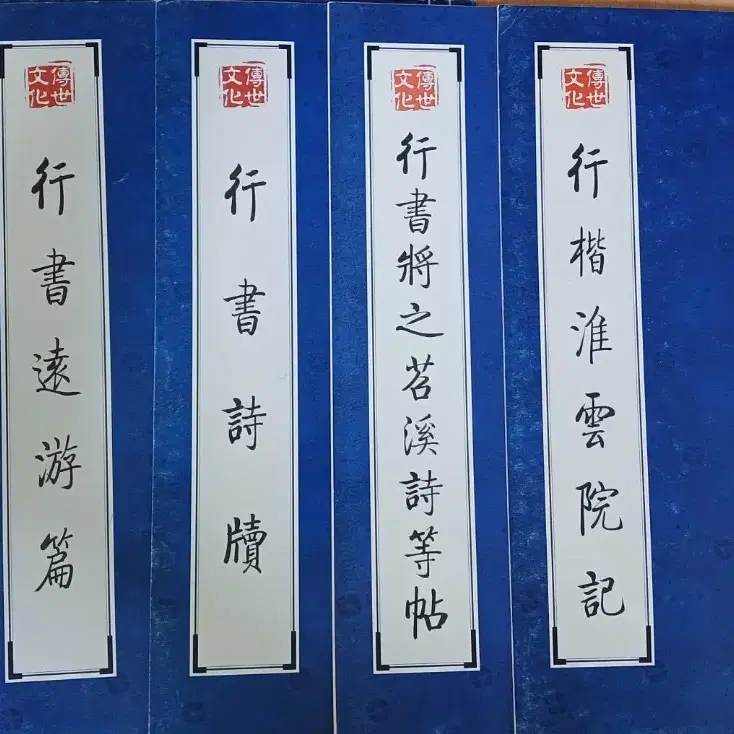 傳世文化
行書遠游篇
傳世文化
行書詩牘
傳世文化
行書將之苕溪詩等帖
傳世文化
行楷淮雲院記